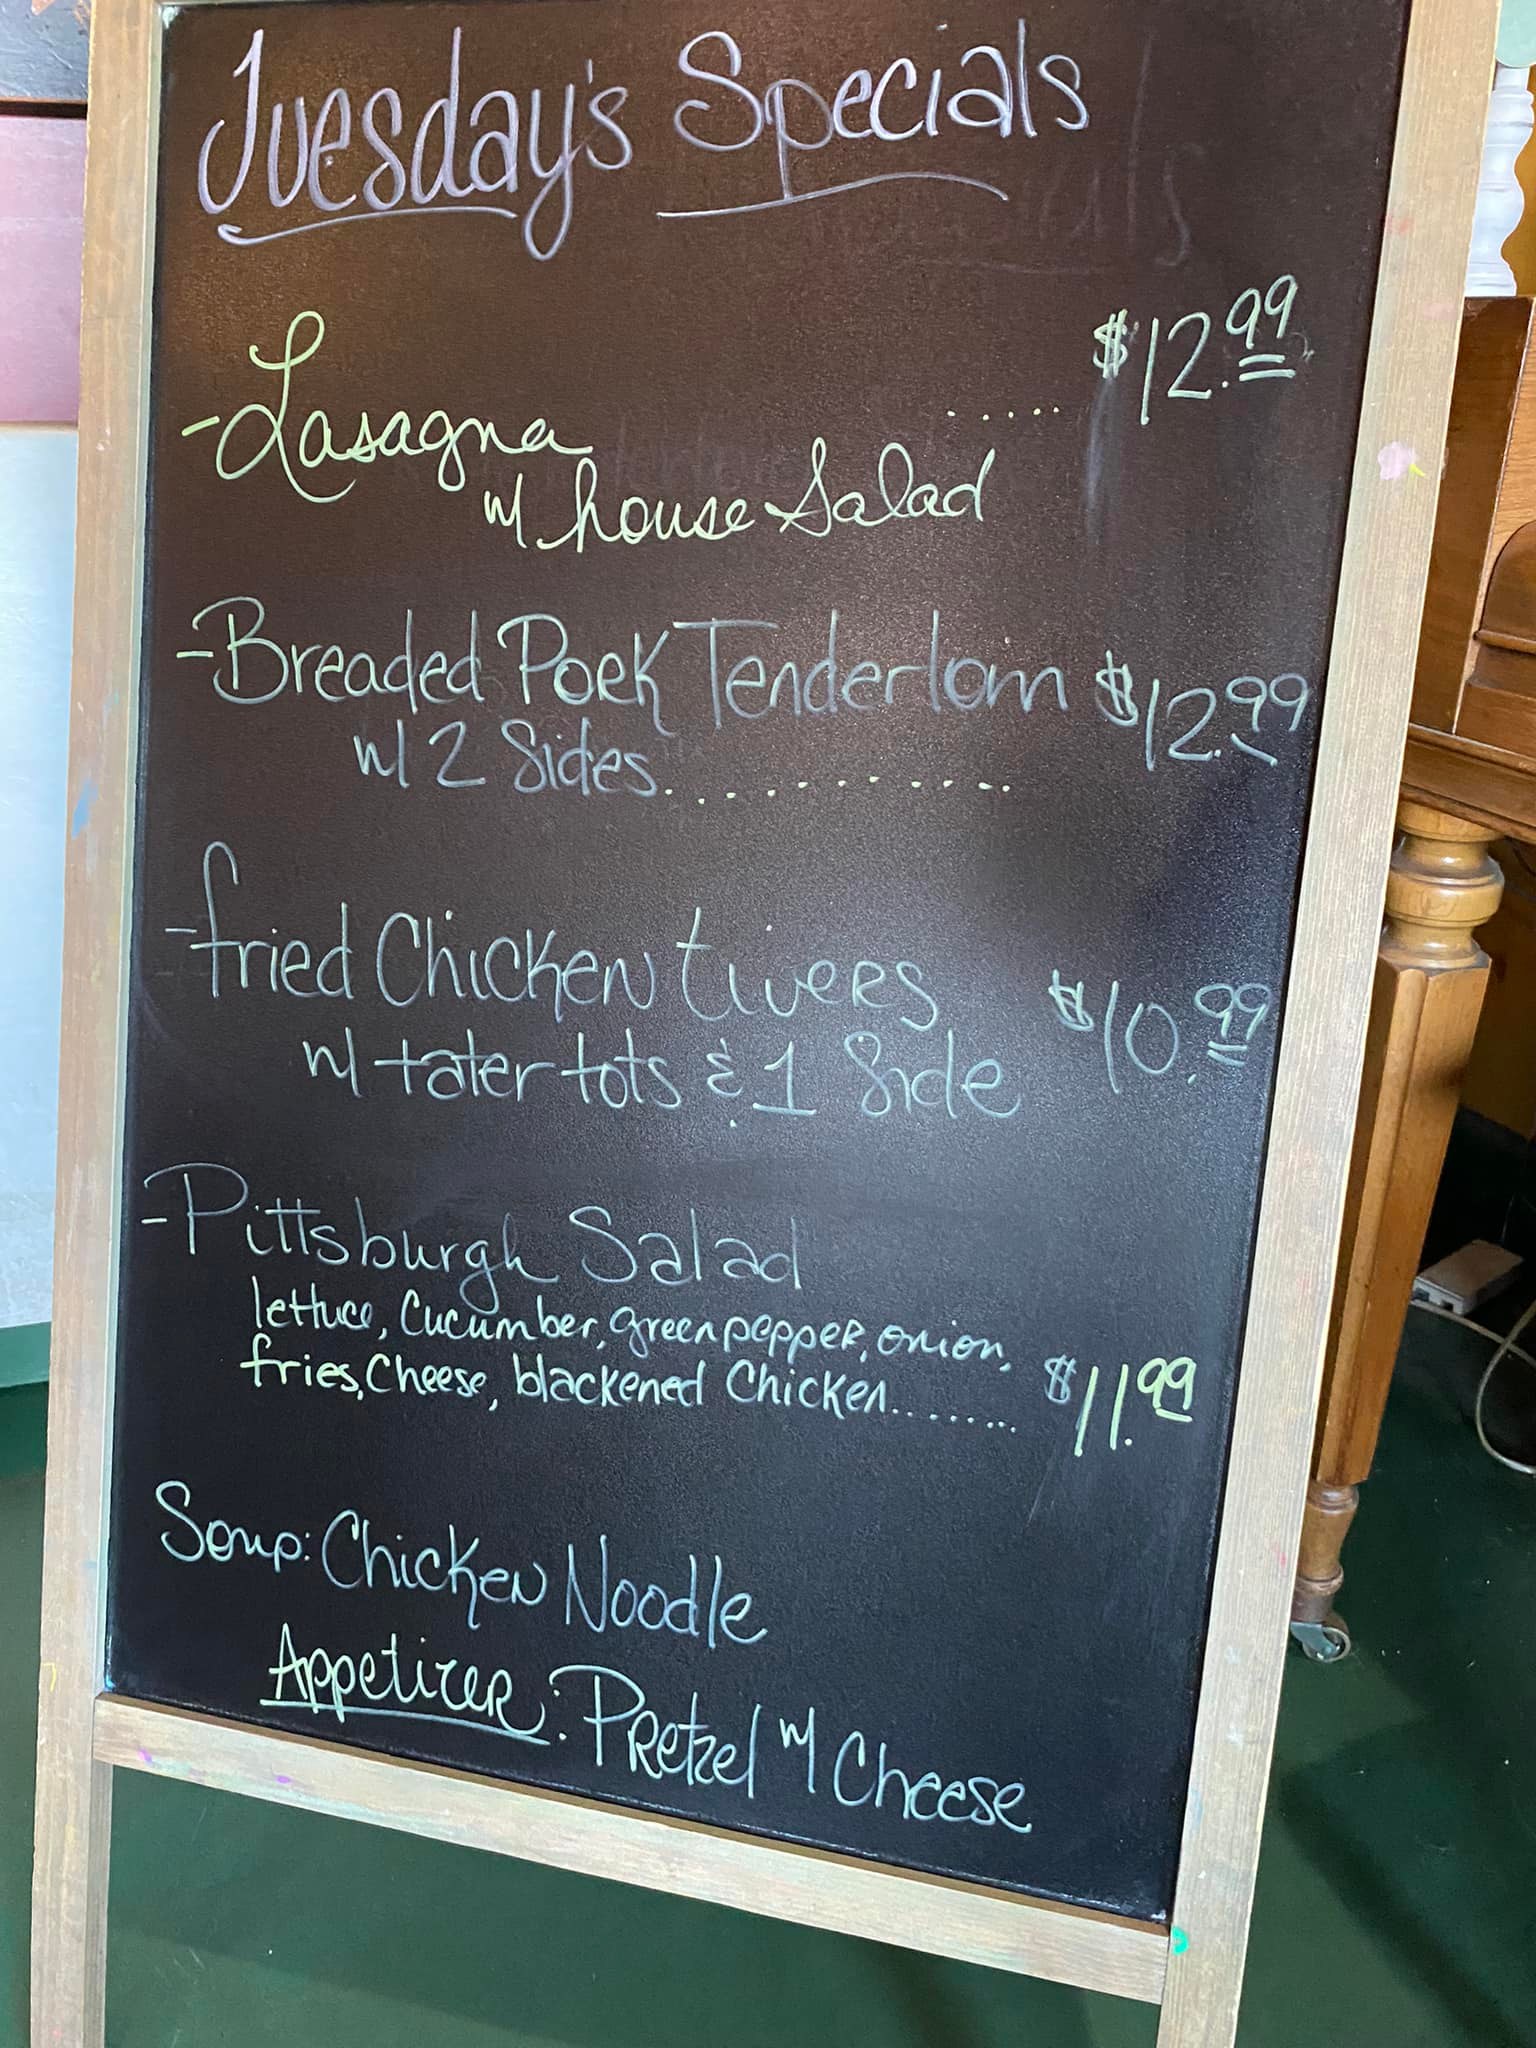 Tuesday's Specials
-Lasagna ..... $12.99
w/ house Salad
-Breaded Pork Tenderloin $12.99
w/ 2 Sides.............
-fried Chicken Livers $10.99
w/ tater tots & 1 Side
-Pittsburgh Salad
lettuce, Cucumber, green pepper, onion,
fries, Cheese, blackened Chicken........ $11.99
Soup: Chicken Noodle
Appetizer: Pretzel w/ Cheese